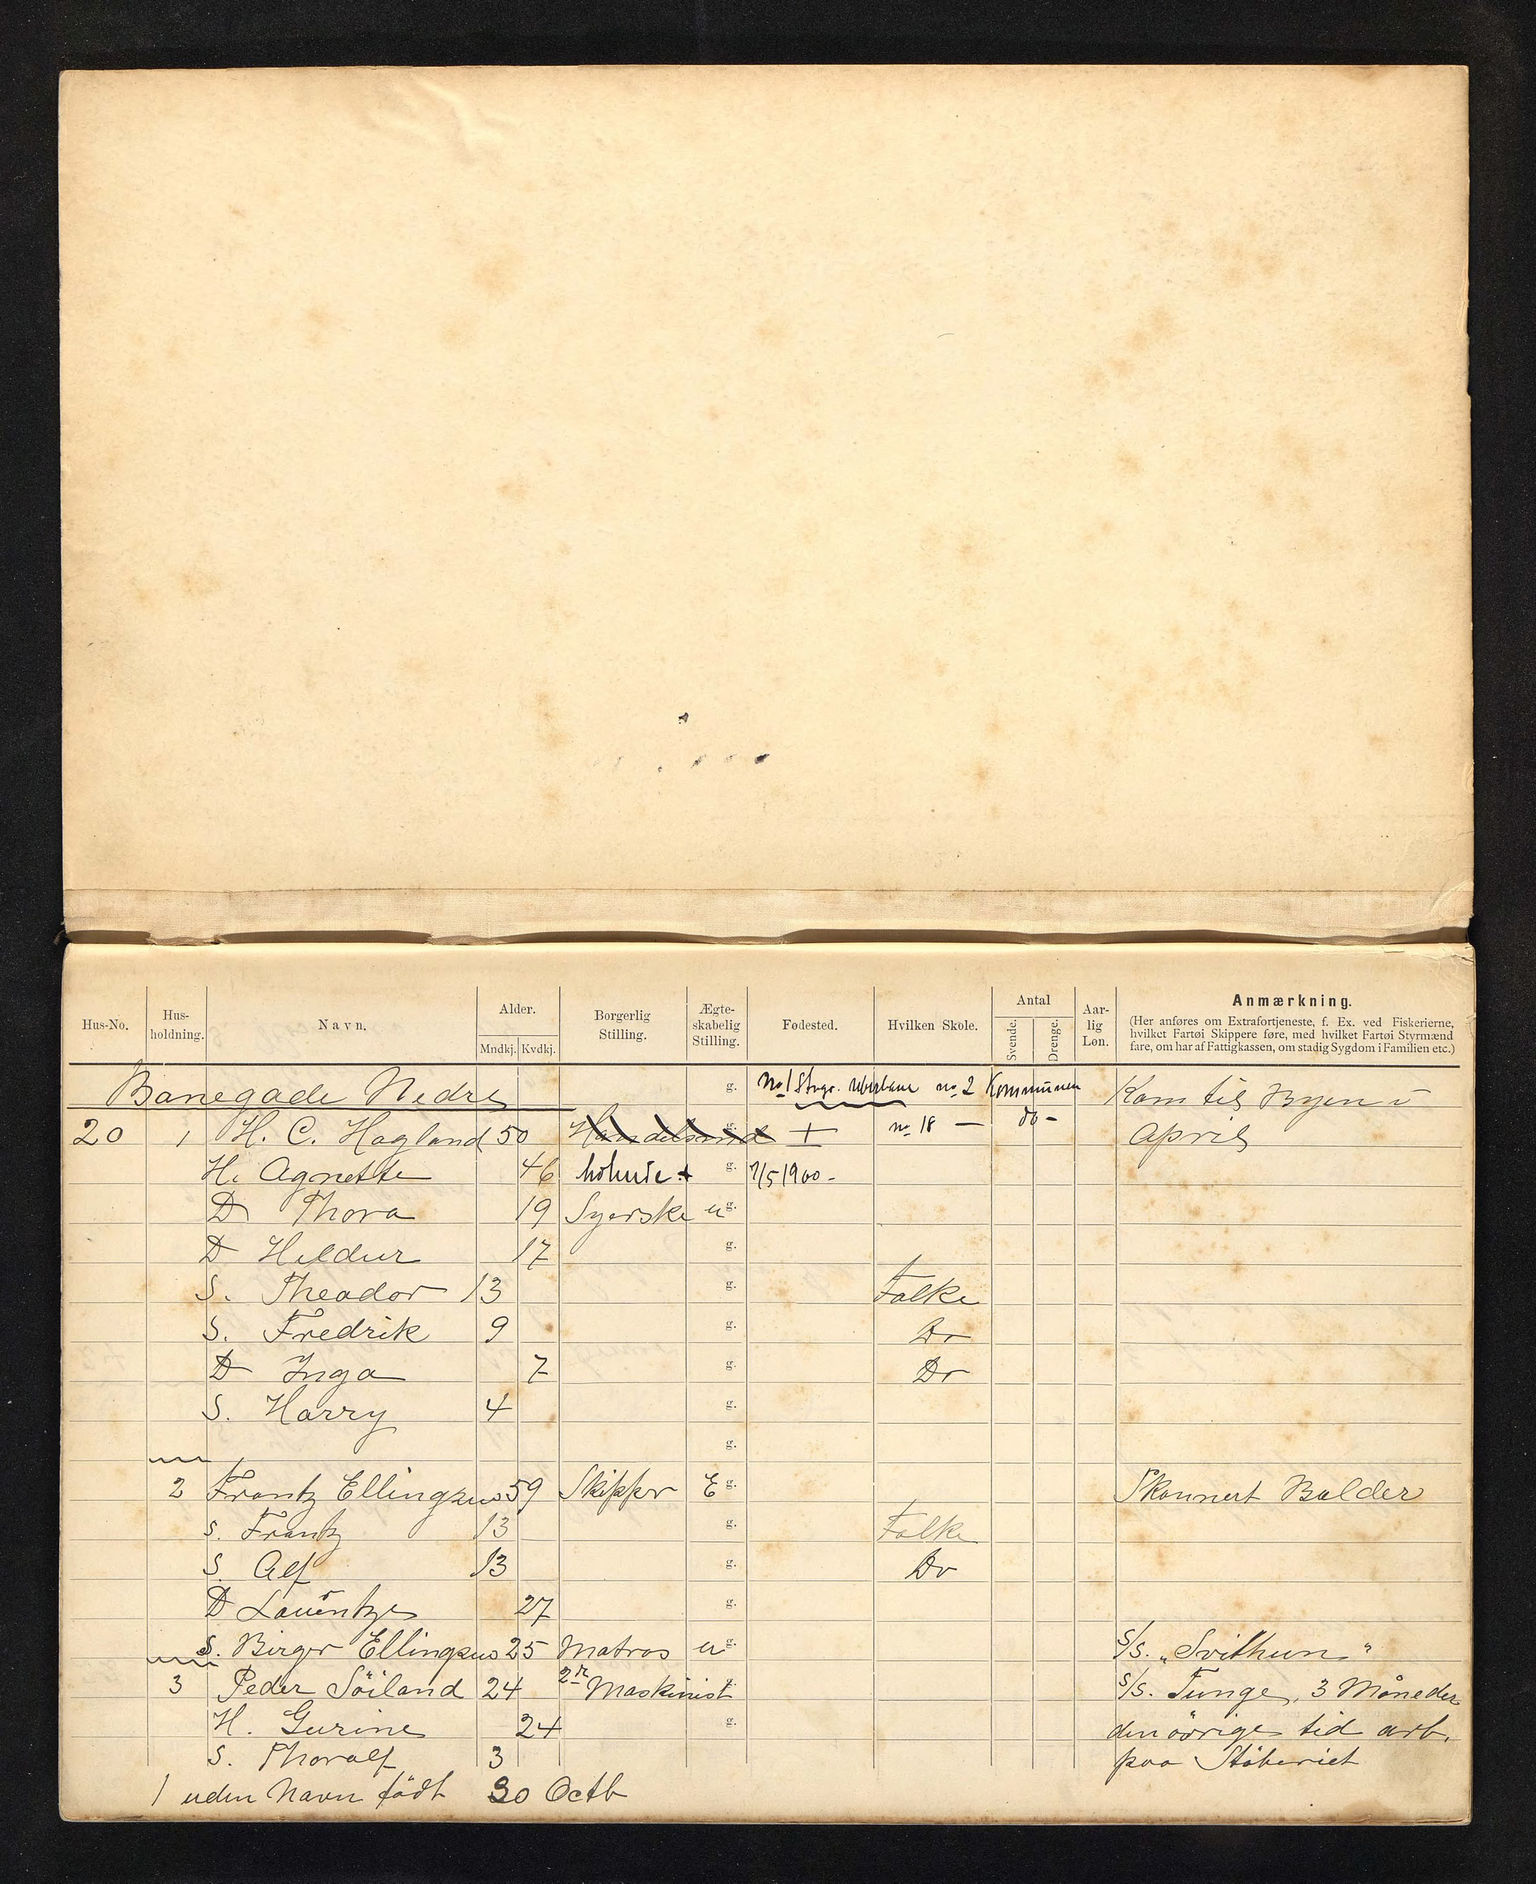 Hus-No. Hus-holdning. Navn. Alder. Mndkj. Kvdkj. Borgerlig Stilling. Ægte-skabelig Stilling. Fødested. Hvilken Skole. Antal Svende. Drenge. Aar-lig Løn. Anmærkning.
(Her anføres om Extrafortjeneste, f. Ex. ved Fiskerierne,
hvilket Fartøi Skippere føre, med hvilket Fartøi Styrmænd
fare, om har af Fattigkassen, om stadig Sygdom i Familien etc.)
Banegade Nedre g. No 1 Stvgr. no 2 Kommunen Kom til Byen i
20 1 H. C. Hagland 50 Handelsmand g. + no 18 — do - April
H. Agnette 46 g. 7/5 1900.
D Thora 19 Syerske u g.
D Hildur 17 g.
S. Theodor 13 g. Folke
S. Fredrik 9 g. Do
D Inga 7 g. Do
S. Harry 4 g.
g.
2 Frantz Ellingsen 59 Skipper E g. Skonnert Balder
S. Frantz 13 g. Folke
S. Alf 13 g. Do
D Laurentze 27 g.
S. Birger Ellingsen 25 Matros u g. S/S. „Svithun"
3 Peder Söiland 24 2n Maskinist g. S/S. Tunge, 3 Måneder
H. Gurine 24 g. den övrige tid arb.
S. Thoralf 3 paa Stöberiet
1 uden Navn födt 30 Octb